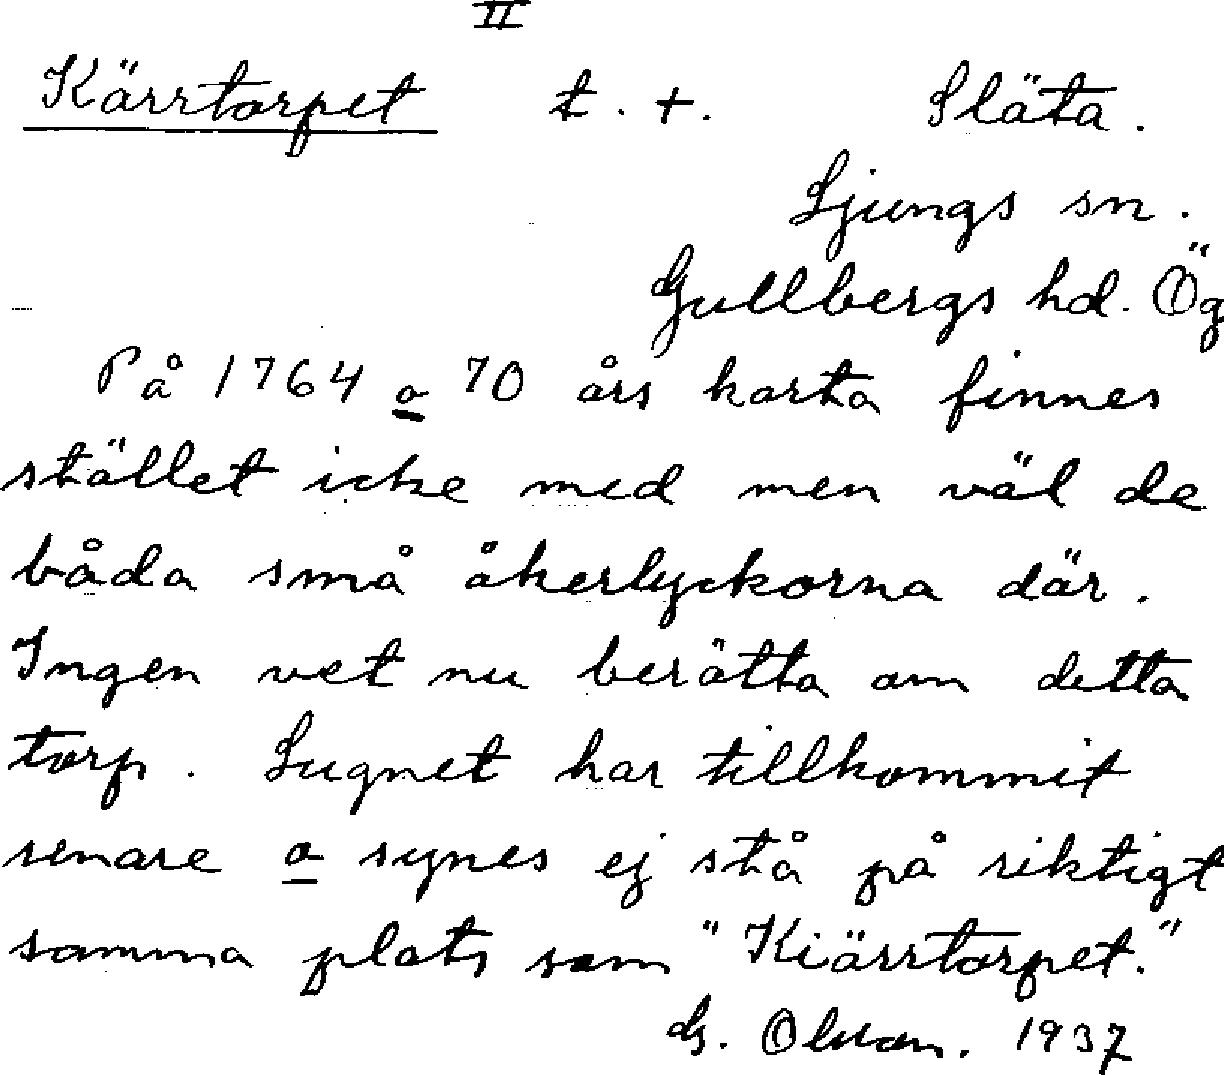 II
Kärrtorpet t. +. Släta.
Ljungs sn.
Gullbergs hd. Ög
På 1764 o 70 års karta finnes
stället icke med men väl de
båda små åkerlyckorna där.
Ingen vet nu berätta om detta
torp. Lugnet har tillkommit
senare o synes ej stå på riktigt
samma plats som "Kiärrtorpet."
G. Olsson. 1937